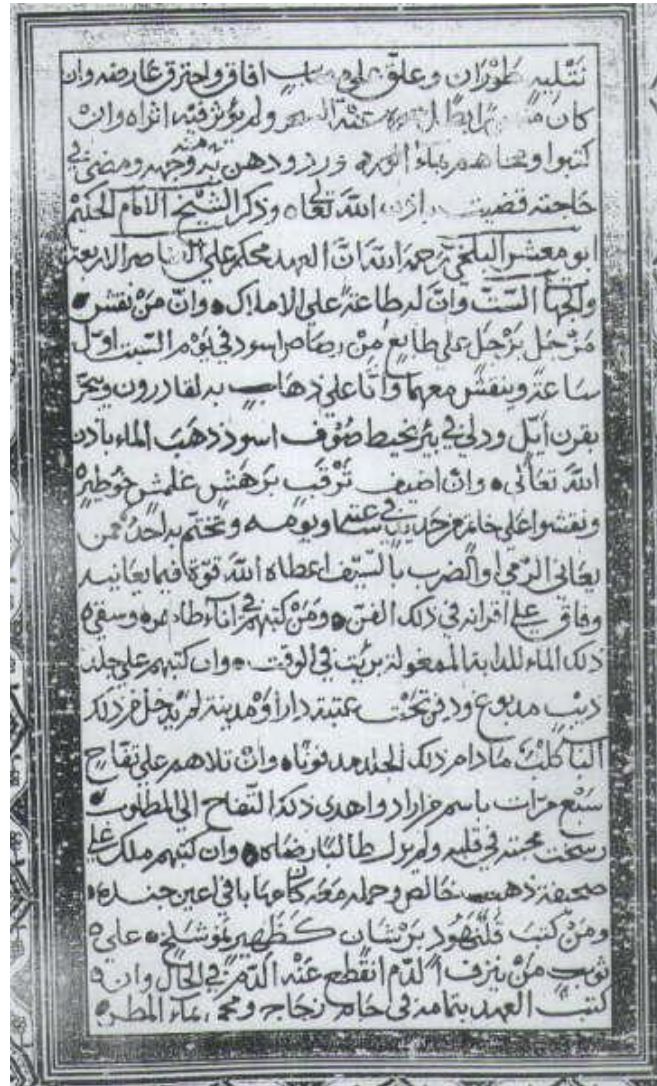 نَتْليه طَوْرَان وعلق على افاق واحترق عارضه وان
كان ولم يؤثر فيه اثراه وان
كتبوا ومضى في
حاجته قضيت باذن الله تعالى وذكر الشيخ الامام الحكيم
ابو معشر البلخي رحمه الله ان العهد محكم على الاربعة
والجهات السّت وان له طاعة على الاملاك وان من نقش
مَزْجَل بَزْجَل على طابع من رصاص اسود في يوم السبت اول
ساعة وينقش معهما وانّا على ذهاب به لقادرون ويبخّر
بقرن ايّل ودلي في بئر بخيط صوف اسود ذهب الماء باذن
الله تعالى وان اضيف تَرْقَب بَرهَش غلمش خوطير
ونقشوا على خاتم من حديد في ويومه وتختم به احد ممن
يعانى الرمي او الضرب بالسّيف اعطاه الله قوة فيما يعانيه
وفاق على اقرانه في ذلك الفن ومن كتبهم في اناء طاهر وسقي
ذلك الماء للدابة الممغولة بريت في الوقت وان كتبهم على جلد
ذيب مدبوغ ودفن تحت عتبة دار او مدينة لم يدخل من ذلك
الباب كلب ما دام ذلك الجلد مدفونا وان تلاهم على تفاح
سبع مرات باسم من اراد واهدى ذلك التفاح الى المطلوب
رسخت محبته في قلبه ولم يزل طالبا رضاه وان كتبهم ملك على
صحيفة ذهب خالص وحمله معه كان مهابا في اعين جنده
ومن كتب قَلْنَهُود بَرْشان كَظْهير نموشلخ على
ثوب من ينزف الدّم انقطع عنه الدّم في الحال وان
كتب العهد بتمامه في جام زجاج ومحي بماء المطر